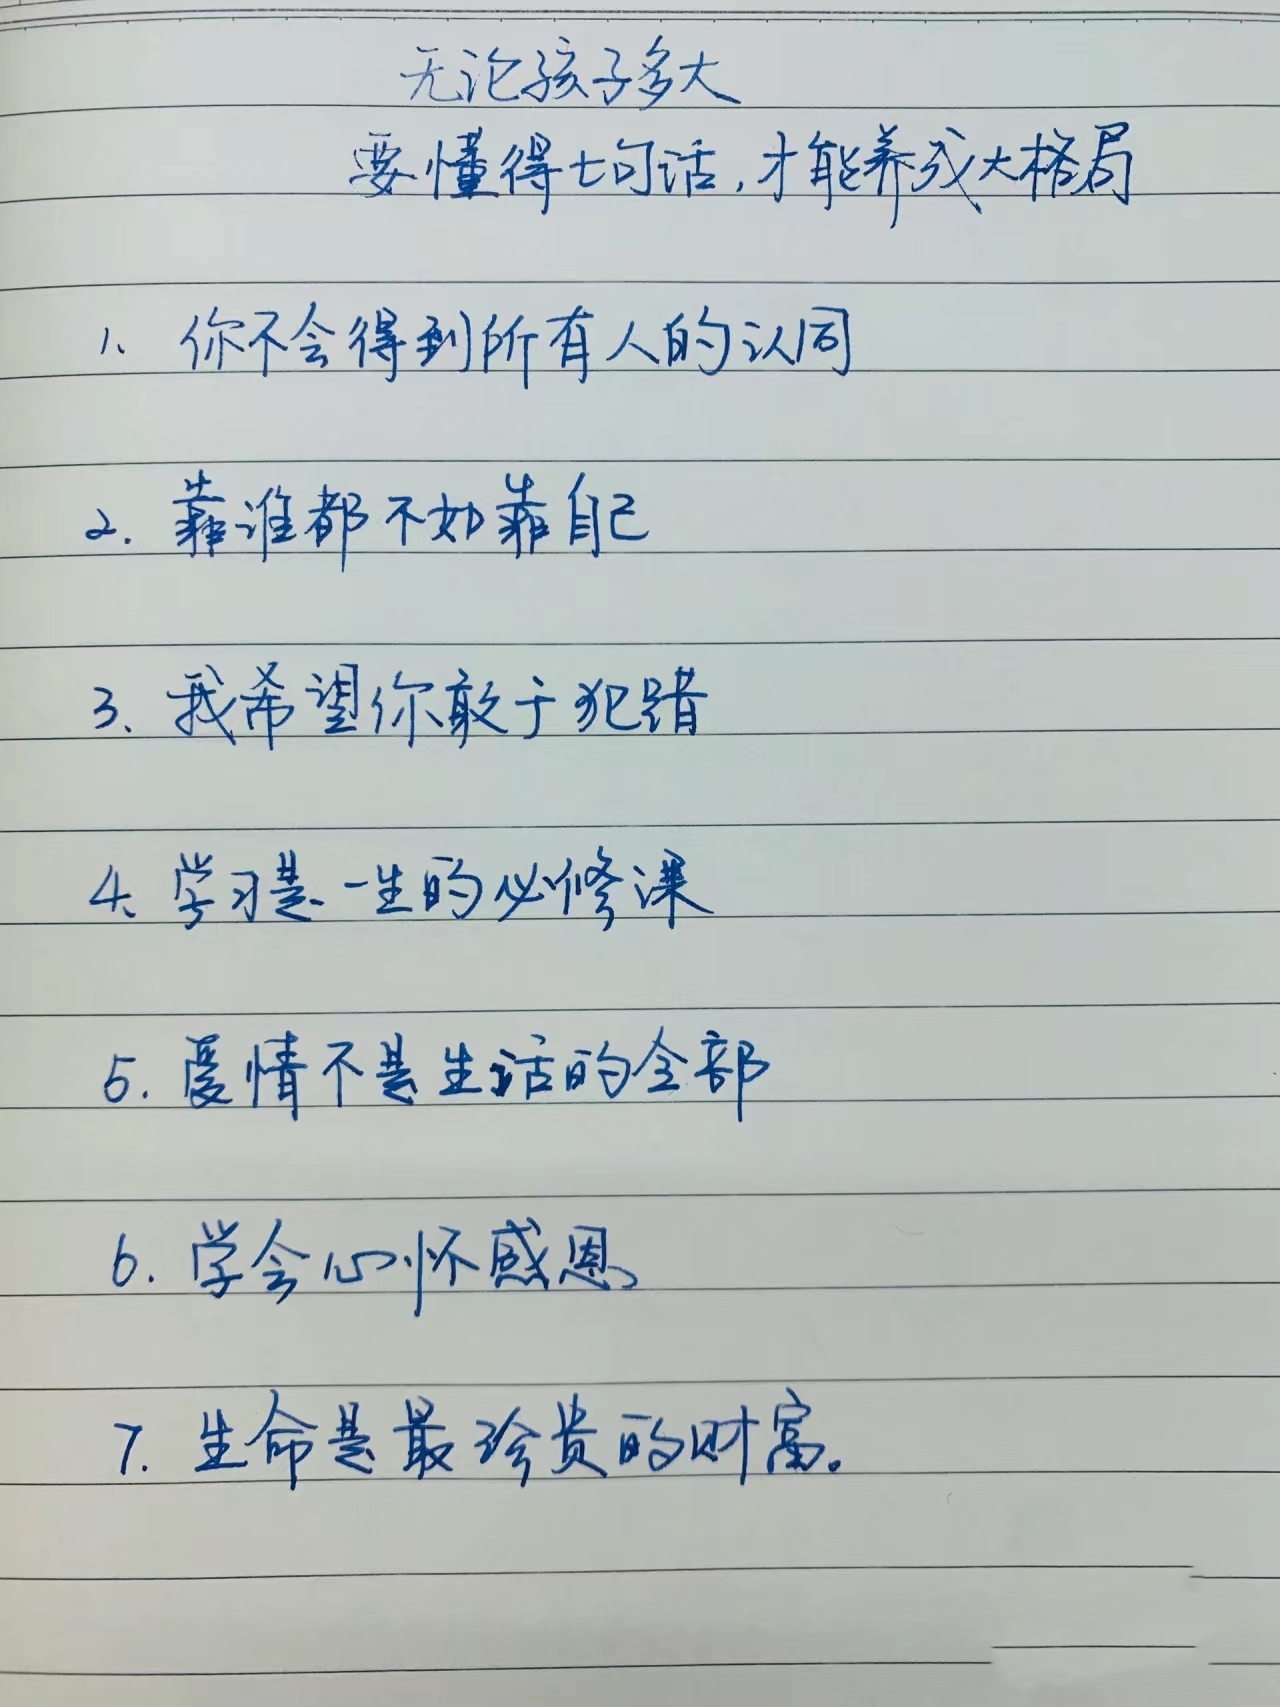 无论孩子多大
要懂得七句话,才能养成大格局
1、你不会得到所有人的认同
2.靠谁都不如靠自己
3、我希望你敢于犯错
4、学习是一生的必修课
5.爱情不是生活的全部
6.学会心怀感恩
7.生命是最珍贵的财富。